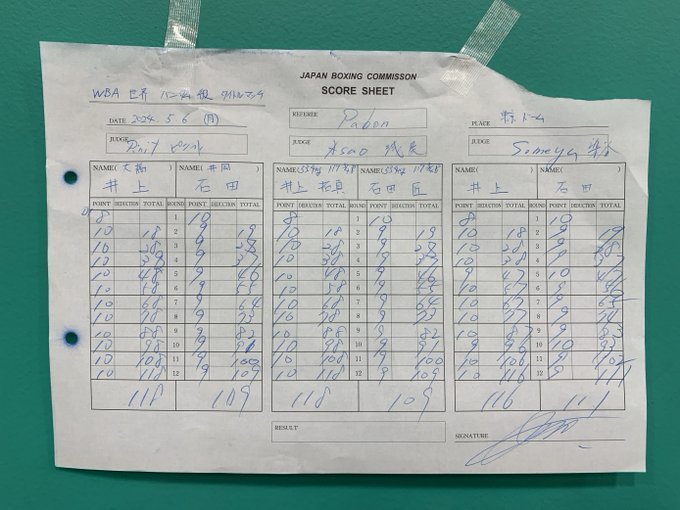 JAPAN BOXING COMMISSON
SCORE SHEET
WBA 世界 バンタム級 タイトルマッチ
DATE 2024. 5. 6 (月)
REFEREE Pabon
PLACE 東京ドーム
JUDGE
JUDGE Asao 浅尾
JUDGE Someya 染谷
NAME( 大橋 ) NAME( 井岡 ) NAME( ) NAME( ) NAME( ) NAME( )
井上 石田 井上 拓真 石田 匠 井上 石田
POINT DEDUCTION TOTAL ROUND POINT DEDUCTION TOTAL POINT DEDUCTION TOTAL ROUND POINT DEDUCTION TOTAL POINT DEDUCTION TOTAL ROUND POINT DEDUCTION TOTAL
8 1 10 8 1 10 8 1 10
10 18 2 9 19 10 18 2 9 19 10 18 2 9 19
10 28 3 9 28 10 28 3 9 28 10 28 3 9 28
10 38 4 9 37 10 38 4 9 37 10 38 4 9 37
10 48 5 9 46 10 48 5 9 46 9 47 5 10 47
10 58 6 9 55 10 58 6 9 55 10 57 6 9 56
10 68 7 9 64 10 68 7 9 64 10 67 7 9 65
10 78 8 9 73 10 78 8 9 73 10 77 8 9 74
10 88 9 9 82 10 88 9 9 82 10 87 9 9 83
10 98 10 9 91 10 98 10 9 91 9 96 10 10 93
10 108 11 9 100 10 108 11 9 100 10 106 11 9 102
10 118 12 9 109 10 118 12 9 109 10 116 12 9 111
118 109 118 109 116 111
RESULT
SIGNATURE